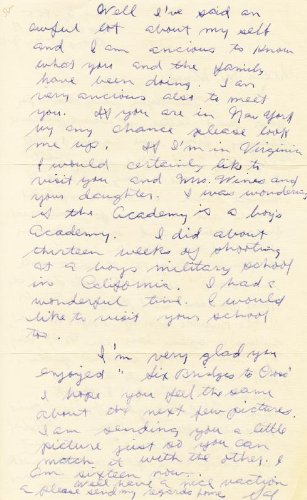 Well I've said an
awful lot about my self
and I am ancious to know
what you and the family
have been doing. I am
very ancious also to meet
you. If you are in New York
by any chance please look
me up. If I'm in Virginia
I would certainly like to
visit you and Mrs. Wines and
your daughter. I was wondering
if the Academy is a boys
Academy. I did about
thirteen weeks of shooting
at a boys military school
in California. I had a
wonderful time. I would
like to visit your school
too.
I'm very glad you
enjoyed "Six Bridges to Cross"
I hope you feel the same
about the next few pictures.
I am sending you a little
picture just so you can
match it with the other. I
am sixteen now.
Well have a nice vaction
& please send my regards home.